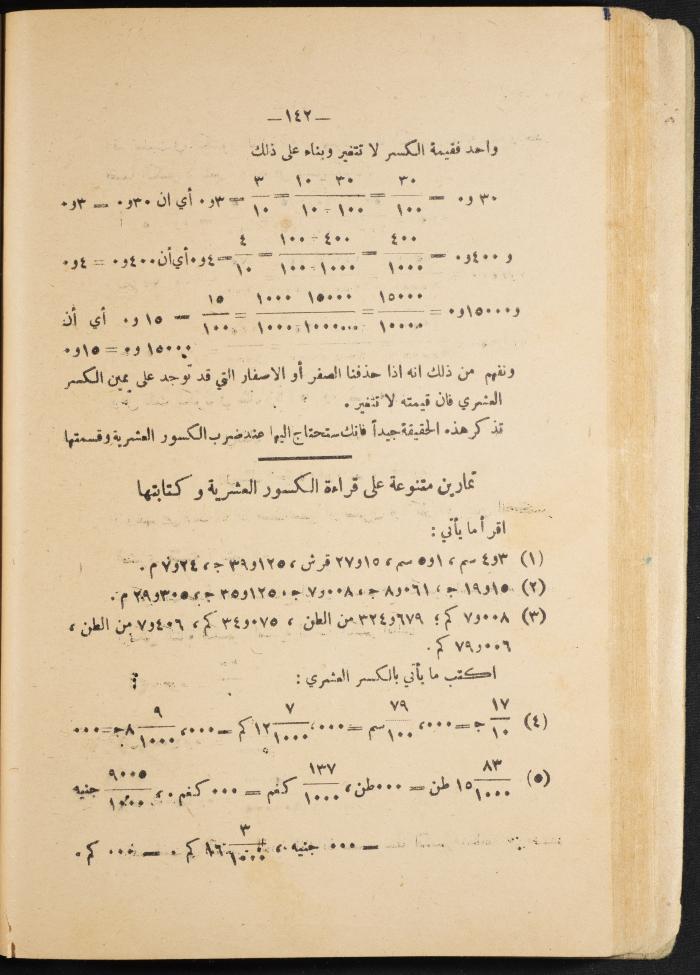 —١٤٢—
واحد فقيمة الكسر لا تتغير وبناء على ذلك
٣٠ و٠ = ٣٠/١٠٠ = ٣٠ ÷ ١٠/١٠٠ ÷ ١٠ = ٣/١٠ = ٣و٠ أي ان ٣٠و٠ = ٣و٠
و ٤٠٠و٠ = ٤٠٠/١٠٠٠ = ٤٠٠ ÷ ١٠٠/١٠٠٠ ÷ ١٠٠ = ٤/١٠ = ٤و٠ أي أن ٤٠٠و٠ = ٤و٠
و١٥٠٠٠و٠ = ١٥٠٠٠/١٠٠٠٠٠ = ١٥٠٠٠ ÷ ١٠٠٠/١٠٠٠٠٠ ÷ ١٠٠٠ = ١٥/١٠٠ = ١٥ و٠ أي أن
١٥٠٠٠ و٠ = ١٥و٠
ونفهم من ذلك انه اذا حذفنا الصفر أو الاصفار التي قد توجد على يمين الكسر
العشري فان قيمته لا تتغير .
تذكر هذه الحقيقة جيداً فانك ستحتاج اليها عند ضرب الكسور العشرية وقسمتها
تمارين متنوعة على قراءة الكسور العشرية وكتابتها
اقرأ ما يأتي :
(١) ٣و٤ سم ، ١و٥ سم ، ١٥و٢٧ قرش ، ١٢٥و٣٩ ج ، ٢٤و٧ م .
(٢) ١٥و١٩ ج ، ٠٦١و٨ ج ، ٠٠٨و٧ ج ، ١٢٥و٣٥ ج ، ٣٠٥و٢٩ م .
(٣) ٠٠٨و٧ كم ؛ ٦٧٩و٣٢٤ من الطن ، ٠٧٥و٣٤ كم ، ٤٠٦و٧ من الطن ،
٠٠٦و٧٩ كم .
اكتب ما يأتي بالكسر العشري :
(٤) ١٧/١٠ ج = ٠٠٠ ، ٧٩/١٠٠ سم = ٠٠٠ ، ٧/١٠٠٠ ١٢ كم = ٠٠٠ ، ٩/١٠٠٠ ٨ ج = ٠٠٠
(٥) ٨٣/١٠٠٠ ١٥ طن = ٠٠٠ طن ، ١٣٧/١٠٠٠ كغم = ٠٠٠ كغم ، ٩٠٠٥/١٠٠٠ جنيه
= ٠٠٠ جنيه ، ٣/١٠٠٠ ١٦ كم = ٠٠٠ كم .